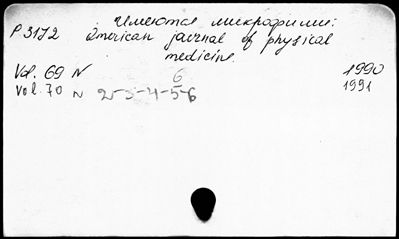 Имеются микрофильмы:
P 3172 American journal of physical
medicine.
Vol. 69 N 6 1990
Vol. 70 N 2-3-4-5-6 1991